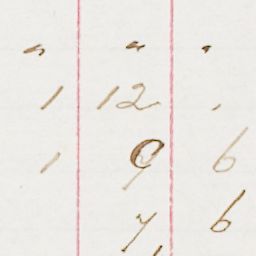 " " "
1 12 .
1 9 6
7 6